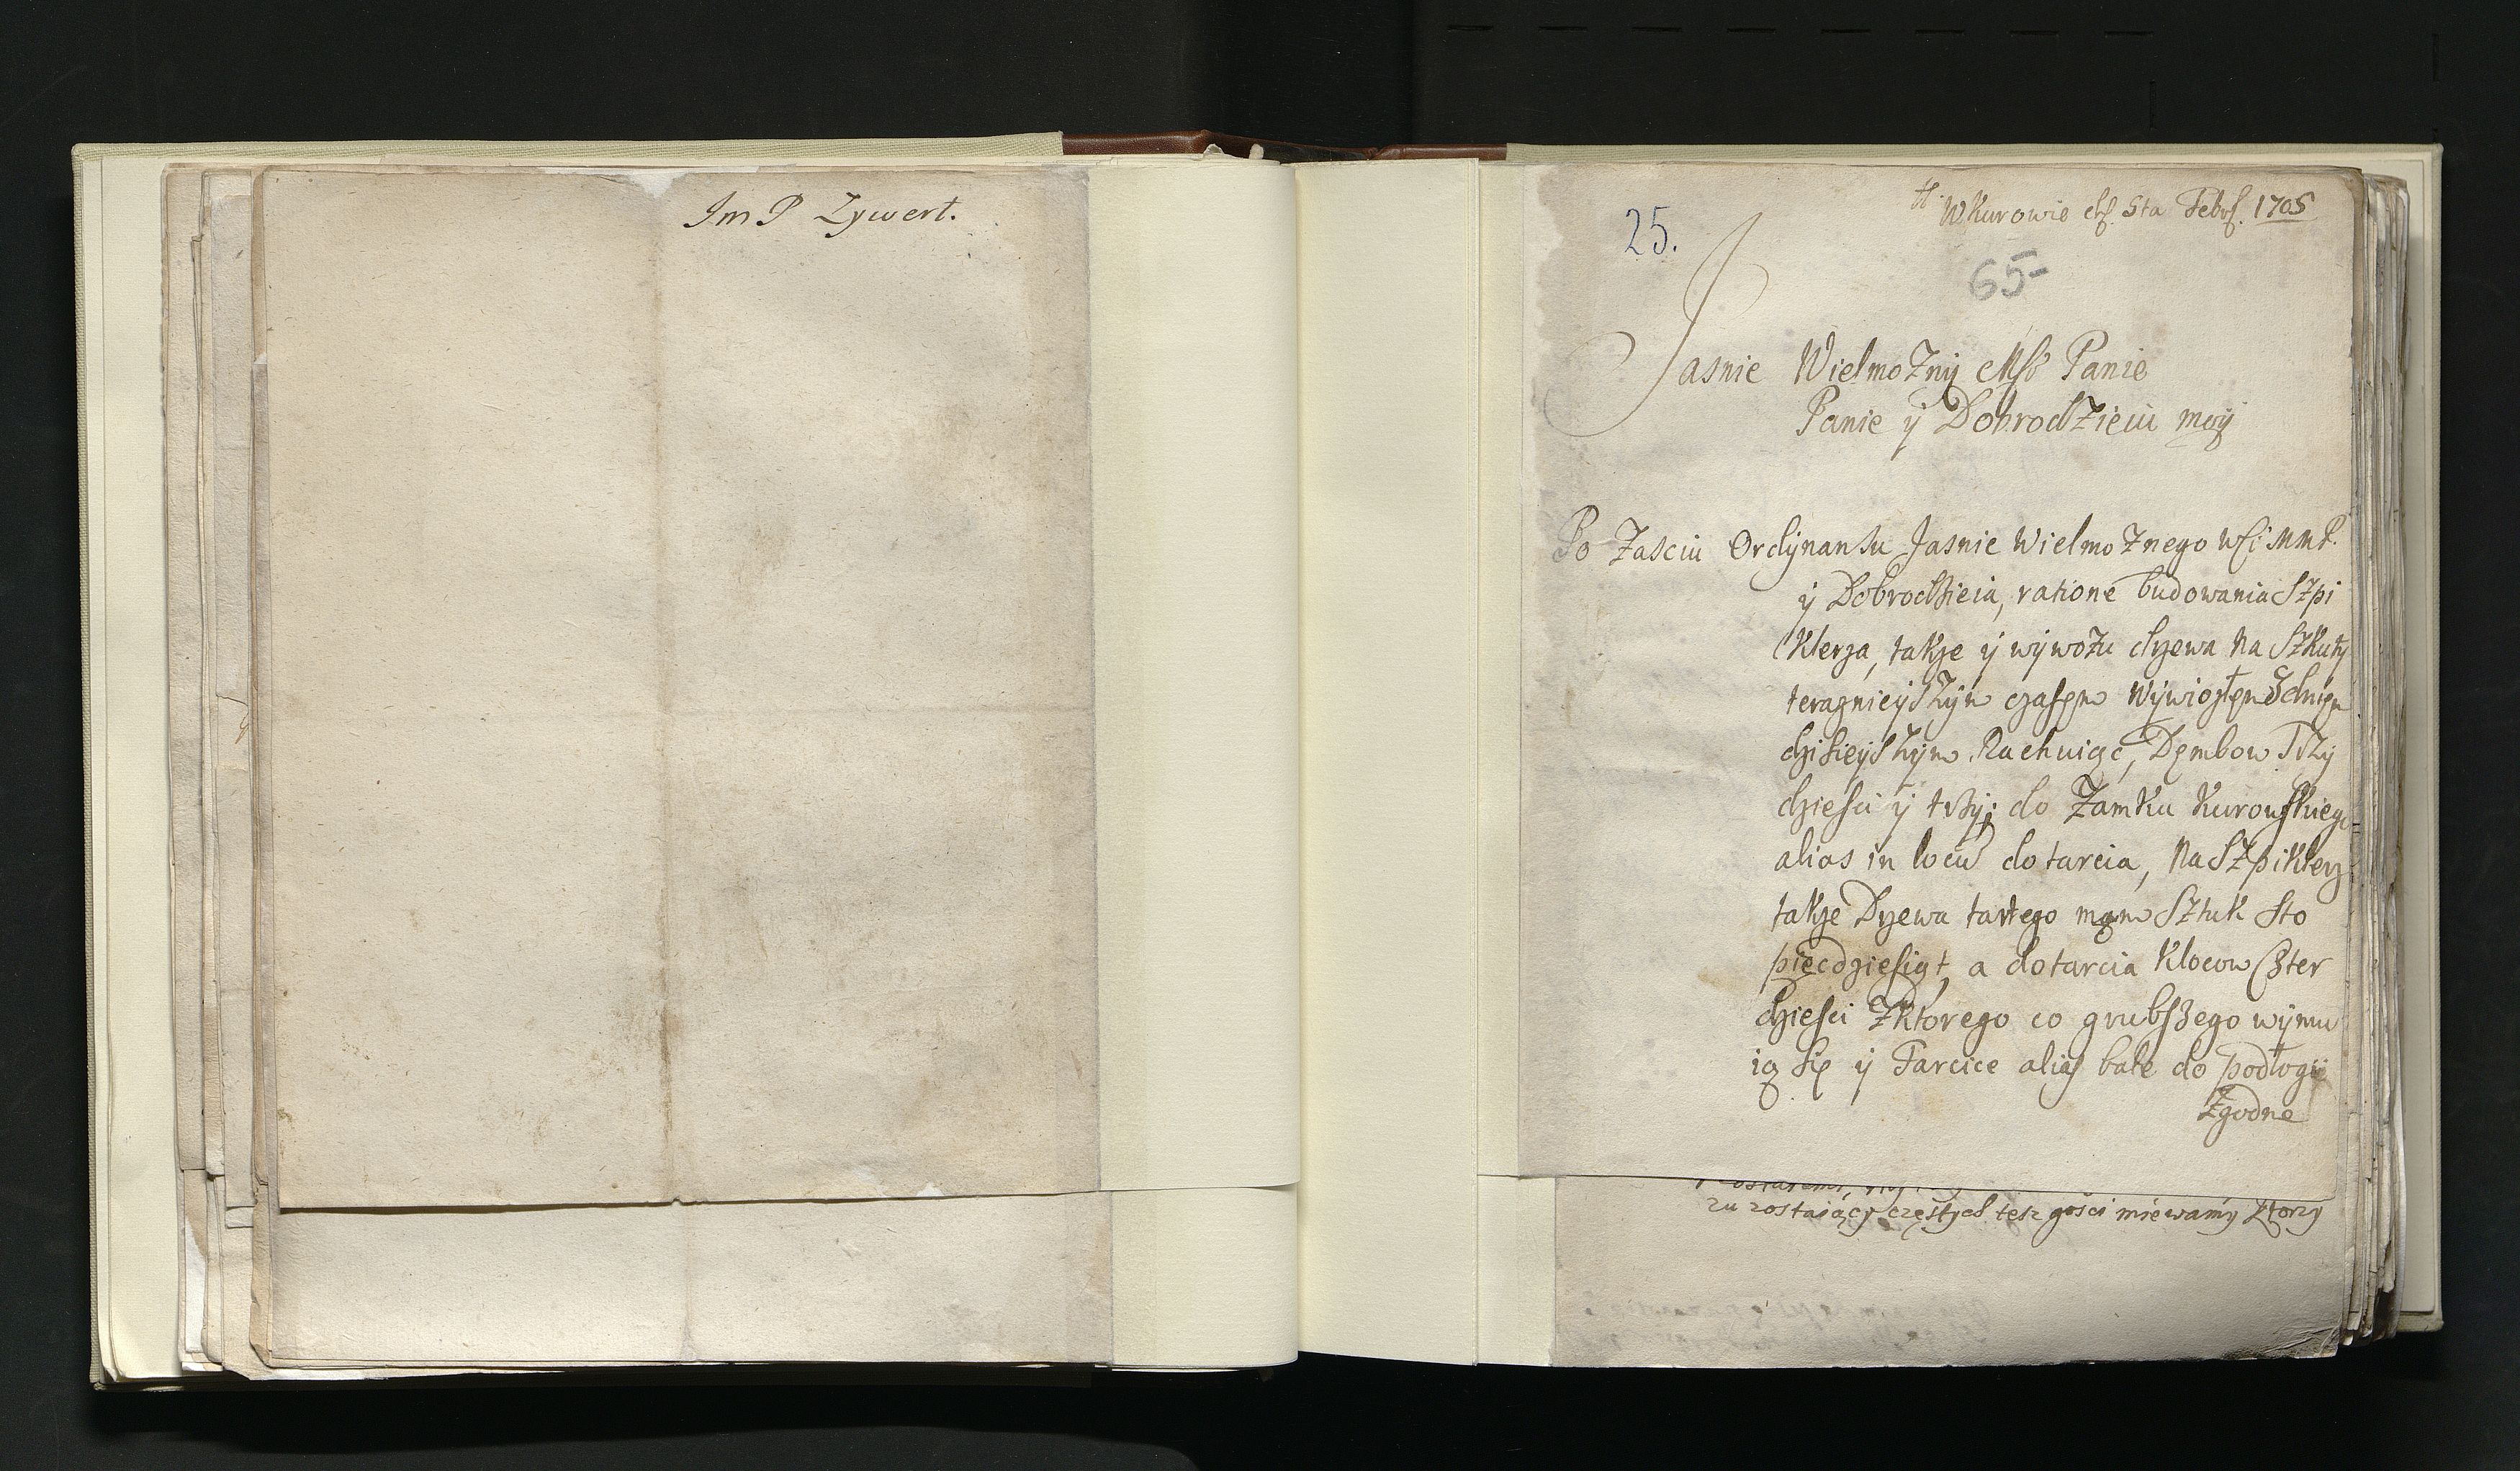 Im P Zywert.
W Kurowie d. 5ta Febr. 1705
25.
65
Jasnie Wielmoznÿ Msc Panie
Panie ÿ Dobrodzieiu moÿ
Po Zasciu Ordÿnansu Jasnie Wielmoznego WSci MMP.
ÿ Dobrodzieia, ratione budowania Szpi
klerza, takze ÿ wÿwozu drzewa na Szkutÿ
teraznieÿszÿm czasem Wÿwiozłem Dniem
dzisieÿszÿm Rachuiąc, Dembow Trzÿ
dziesci ÿ trzÿ; do Zamku Kurowskiego
alias in locu do tarcia, na Szpiklerz
takze Drzewa tartego mam Sztuk Sto
pięcdziesiąt, a do tarcia Klocow Czter
dziesci Z ktorego co grubszego wÿmu
ią się ÿ Tarcice alias bale do podłogii
Zgodne
zu zostaiący częstych tesz gości miewamy Ktorzy